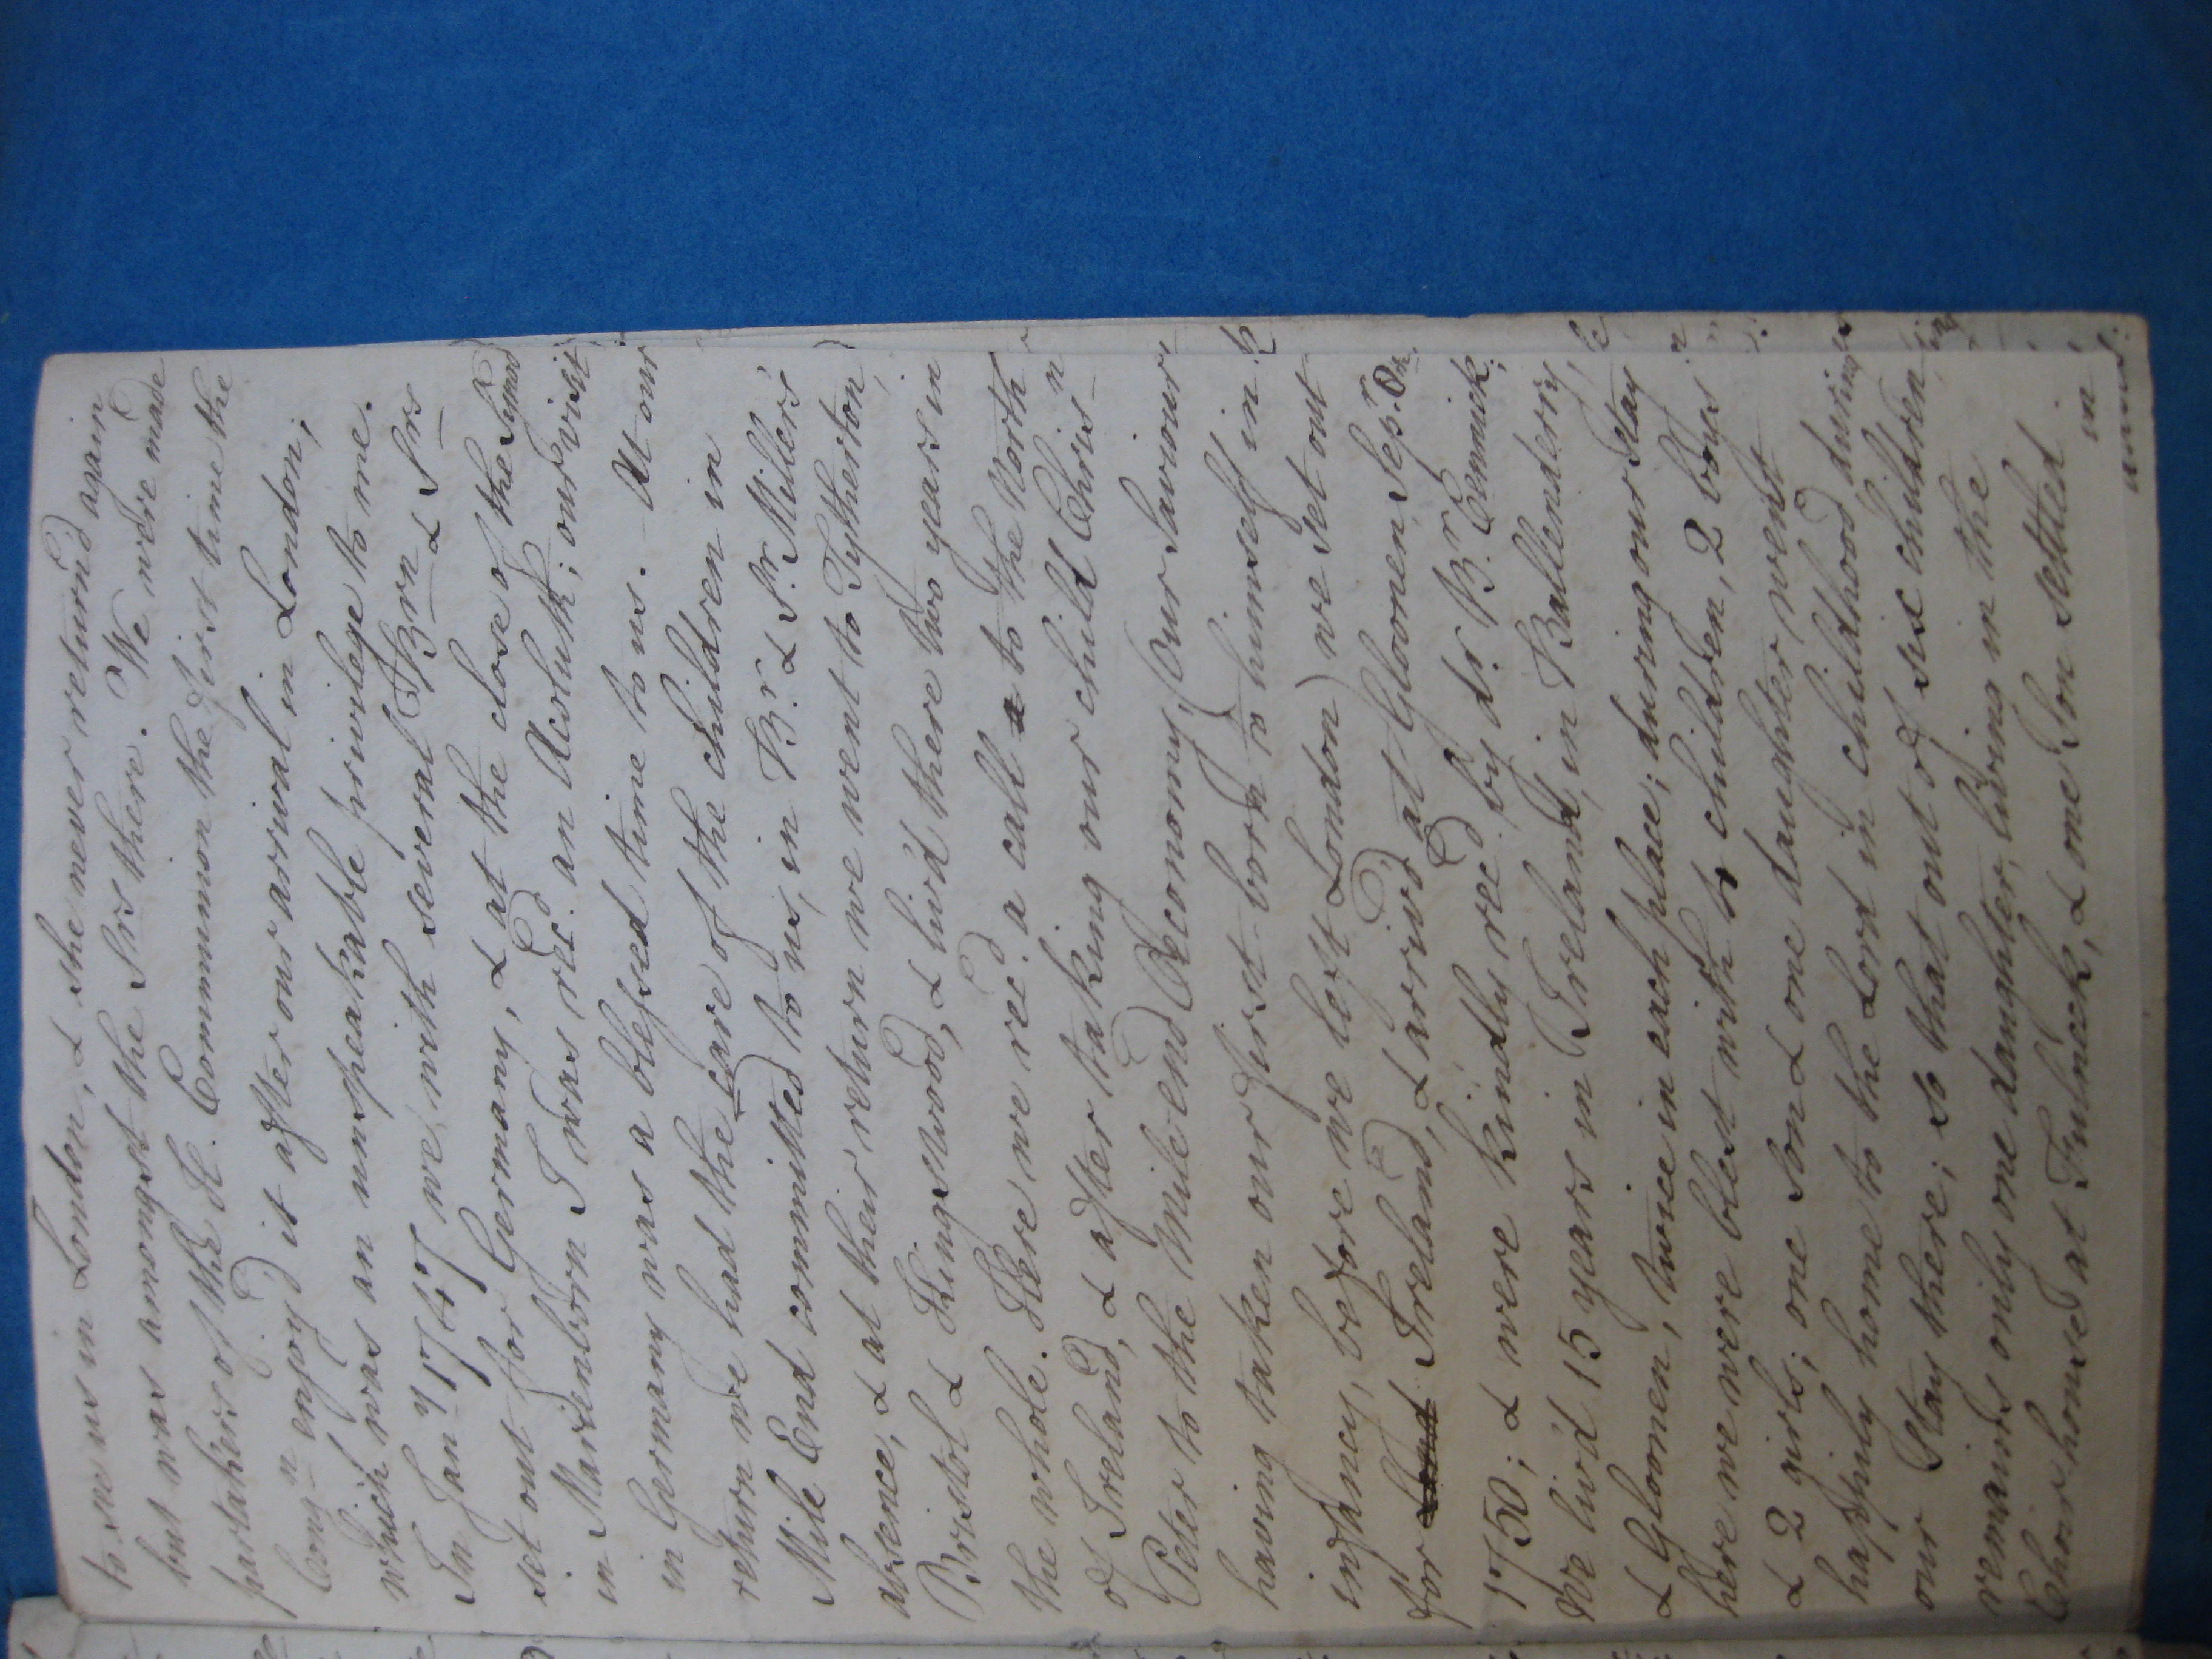 to see us in London, & she never return'd again
but was amongst the Srs there. We were made
partakers of the H. Communion the first time the
Congn enjoy'd it after our arrival in London;
which was an unspeakable privilege to me.
In Jany 1747 we, with several Brn & Srs
set out for Germany, & at the close of the Synod
in Marienborn I was recd. an Acoluth; our visit
in Germany was a blessed time to us. At our
return we had the care of the children in
Mile End committed to us, in Br. & Sr. Miller's
absence, & at their return we went to Tytherton,
Bristol & Kingswood, & liv'd there two years in
the whole. Here we recd. a call a to the North
of Ireland, & after taking our child Chrisn
Peter to the Mile end Oeconomy, (Our Saviour
having taken our first-born to himself in
infancy, before we left London) we set out
for Lond Ireland, & arriv'd at Gloonen, Sepr.
1750; & were kindly recd. by dr. Br. Cennick;
We liv'd 15 years in Ireland, in Ballenderry,
& Gloonen, twice in each place; during our stay
here we were blest with 4 children, 2 boys
& 2 girls; one son & one daughter went
happily home to the Lord in childhood, during
our stay there; so that out of six children
remains only one daughter, living in the
Choir house at Fulneck, & one Son settled
in